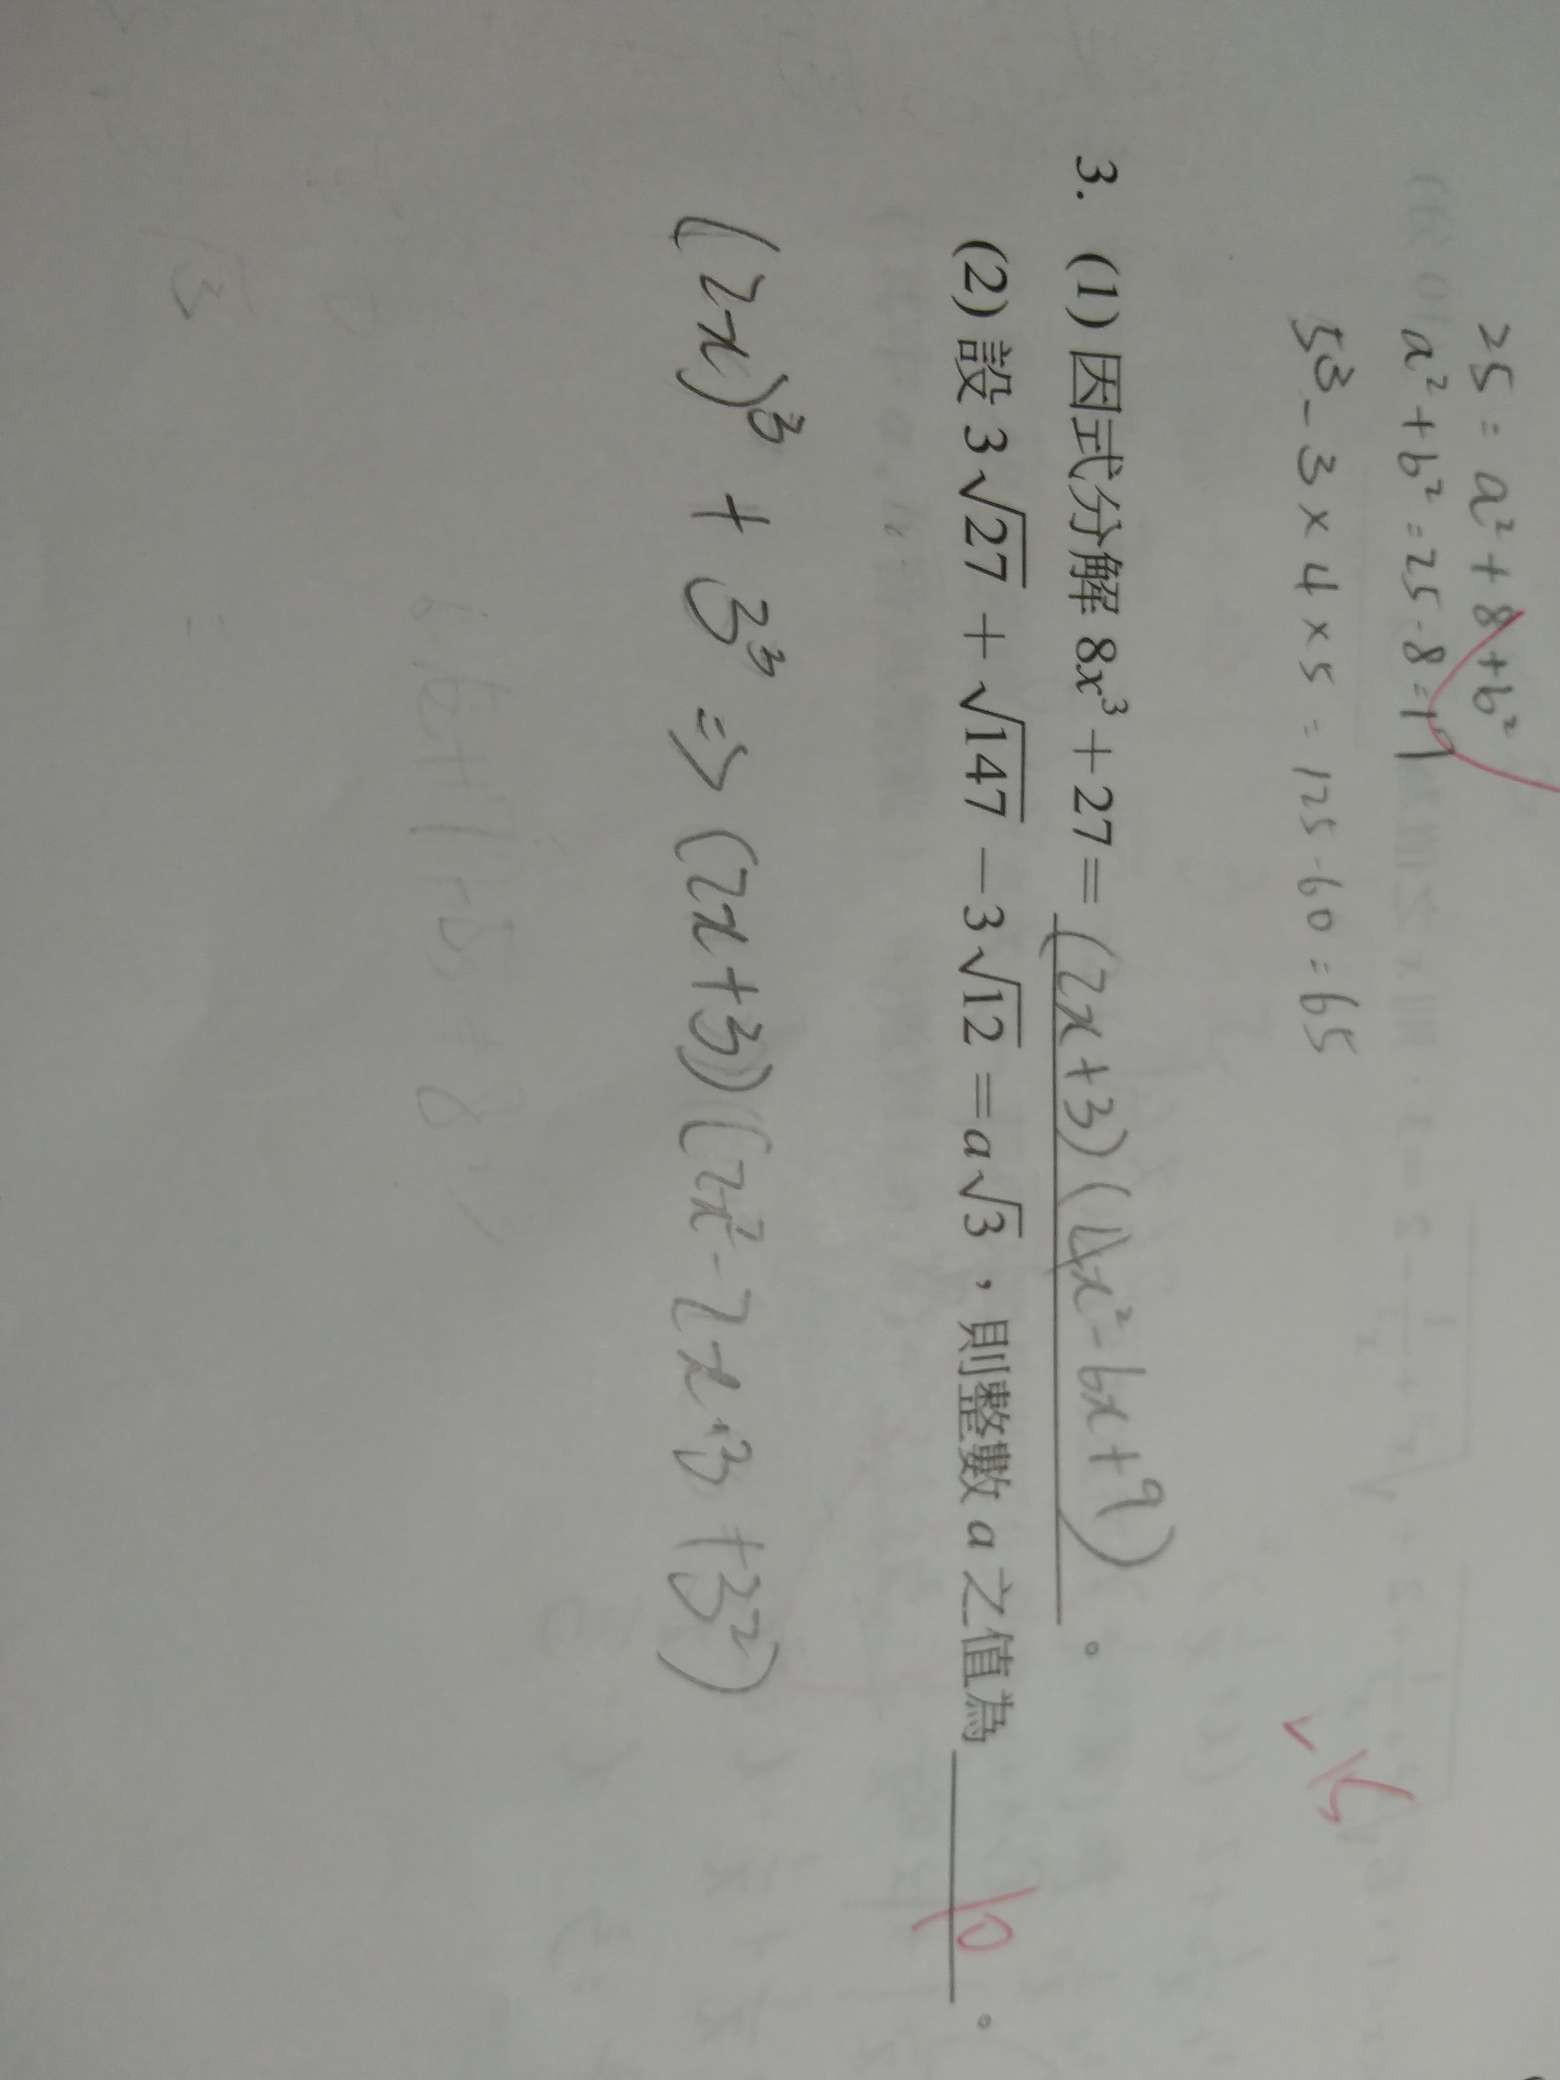 25 = a² + 8 + b²
a² + b² = 25 - 8 = 17
5³ - 3 × 4 × 5 = 125 - 60 = 65
3. (1) 因式分解 8x³ + 27 = (2x+3)(4x² - 6x + 9)。
(2) 設 3√27 + √147 - 3√12 = a√3，則整數 a 之值為 10。
(2x)³ + 3³ ⇒ (2x+3)(2x² - 2x·3 + 3²)